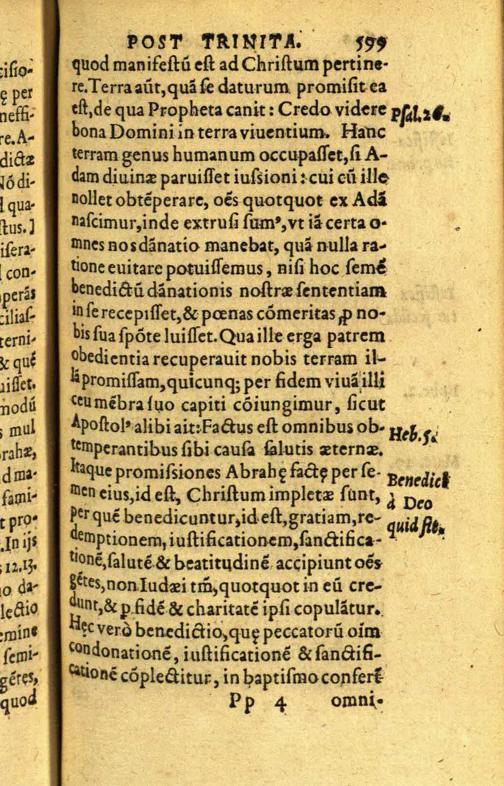 POST TRINITA. 599
quod manifestū est ad Christum pertine-
re. Terra aūt, quā se daturum promisit ea
est, de qua Propheta canit: Credo videre
Psal. 26.
bona Domini in terra viuentium. Hanc
terram genus humanum occupasset, si A-
dam diuinæ paruisset iussioni: cui cū ille
nollet obtēperare, oēs quotquot ex Adā
nascimur, inde extrusi sumꝰ, vt iā certa o-
mnes nos dānatio manebat, quā nulla ra-
tione euitare potuissemus, nisi hoc semē
benedictū dānationis nostræ sententiam
in se recepisset, & pœnas cōmeritas ꝓ no-
bis sua spōte luisset. Qua ille erga patrem
obedientia recuperauit nobis terram il-
lā promissam, quicunq; per fidem viuā illi
ceu mēbra suo capiti cōiungimur, sicut
Apostolꝰ alibi ait: Factus est omnibus ob-
Heb. 5.
temperantibus sibi causa salutis æternæ.
Itaque promissiones Abrahę factę per se-
Benedict
men eius, id est, Christum impletæ sunt,
à Deo
per quē benedicuntur, id est, gratiam, re-
quid sit.
demptionem, iustificationem, sanctifica-
tionē, salutē & beatitudinē accipiunt oēs
gētes, non Iudæi tm̄, quotquot in eū cre-
dunt, & ꝑ fidē & charitatē ipsi copulātur.
Hęc verò benedictio, quę peccatorū oīm
condonationē, iustificationē & sanctifi-
cationē cōplectitur, in baptismo conferē
Pp 4 omni-
cisio-
ę per
neffi-
re. A-
dictæ
Nō di-
d qua-
stus.]
isera-
l con-
perās
ciliaſ-
terni-
& quē
uisset.
modū
s mul
rahæ,
d ma-
fami-
t pro-
. In ijs
12.13.
io da-
lectio
emine
semi-
gētes,
quod